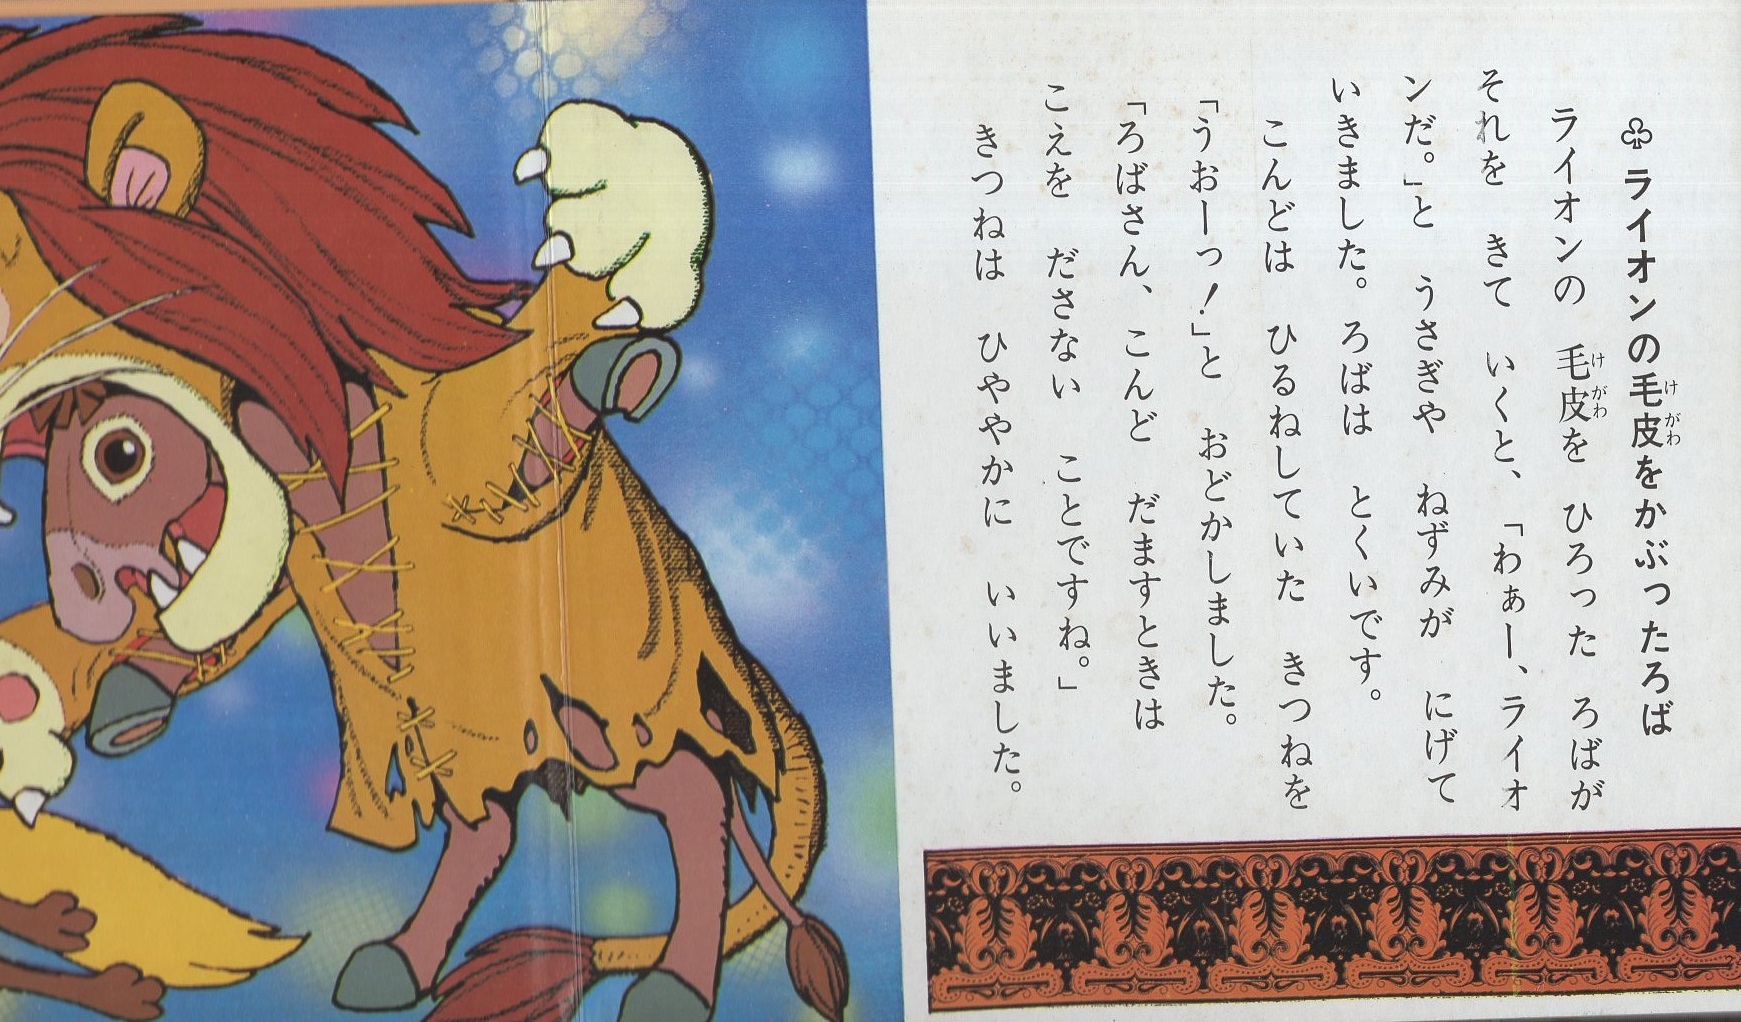 ♧ライオンの毛皮をかぶったろば
ライオンの 毛皮を ひろった ろばが
それを きて いくと、「わぁー、ライオ
ンだ。」と うさぎや ねずみが にげて
いきました。ろばは とくいです。
こんどは ひるねしていた きつねを
「うおーっ！」と おどかしました。
「ろばさん、こんど だますときは
こえを ださない ことですね。」
きつねは ひややかに いいました。